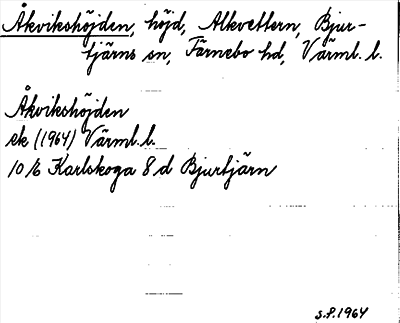 Åkvikshöjden, höjd, Alkvettern, Bjur-
tjärns sn, Färnebo hd, Värml. l.
Åkvikshöjden
ek (1964) Värml. l.
10/6 Karlskoga 8 d Bjurtjärn
S.P. 1964